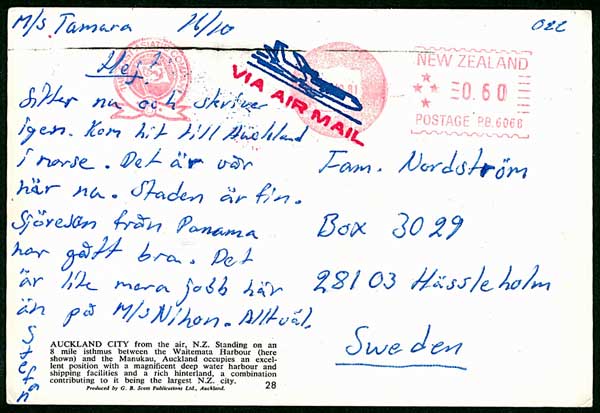 M/S Tamara 16/10
Hej!
Sitter nu och skriver
igen. Kom hit till Auckland
i morse. Det är vår
här nu. Staden är fin.
Sjöresan från Panama
har gått bra. Det
är lite mera jobb här
än på M/S Nihon. Allt väl.
Stefan
VIA AIR MAIL
NEW ZEALAND
0.60
POSTAGE P.B.6068
Fam. Nordström
Box 3029
28103 Hässleholm
Sweden
AUCKLAND CITY from the air, N.Z. Standing on an
8 mile isthmus between the Waitemata Harbour (here
shown) and the Manukau, Auckland occupies an excel-
lent position with a magnificent deep water harbour and
shipping facilities and a rich hinterland, a combination
contributing to it being the largest N.Z. city.
Produced by G. B. Scott Publications Ltd., Auckland.
28